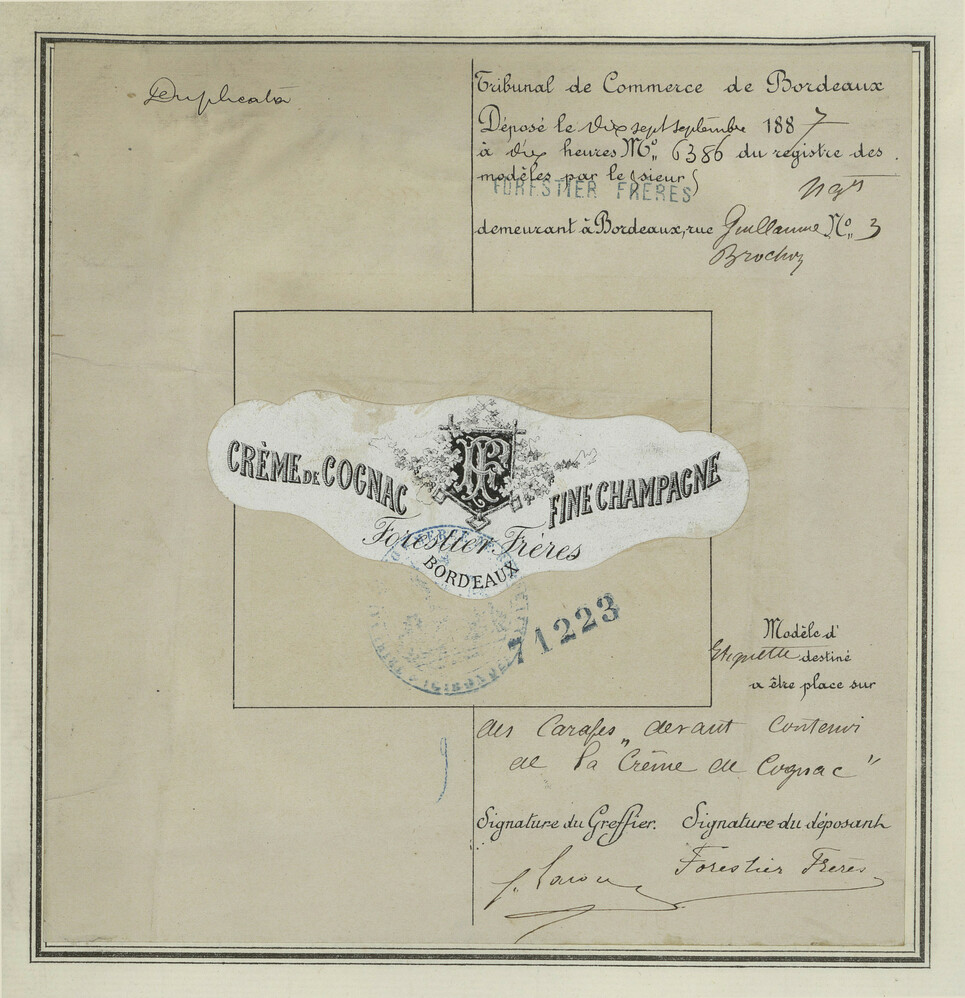 Duplicata
Tribunal de Commerce de Bordeaux
Déposé le dix sept septembre 1887
à dix heures No. 6386 du registre des
modèles par le sieur
FORESTIER FRÈRES
Ngts
demeurant à Bordeaux, rue Guillaume No. 3
Brochon
CRÈME DE COGNAC
FINE CHAMPAGNE
Forestier Frères
BORDEAUX
71223
Modèle d'
Etiquette destiné
a être place sur
des Carafes „ devant Contenir
de la Crème de Cognac "
Signature du Greffier. Signature du déposant
Forestier Frères